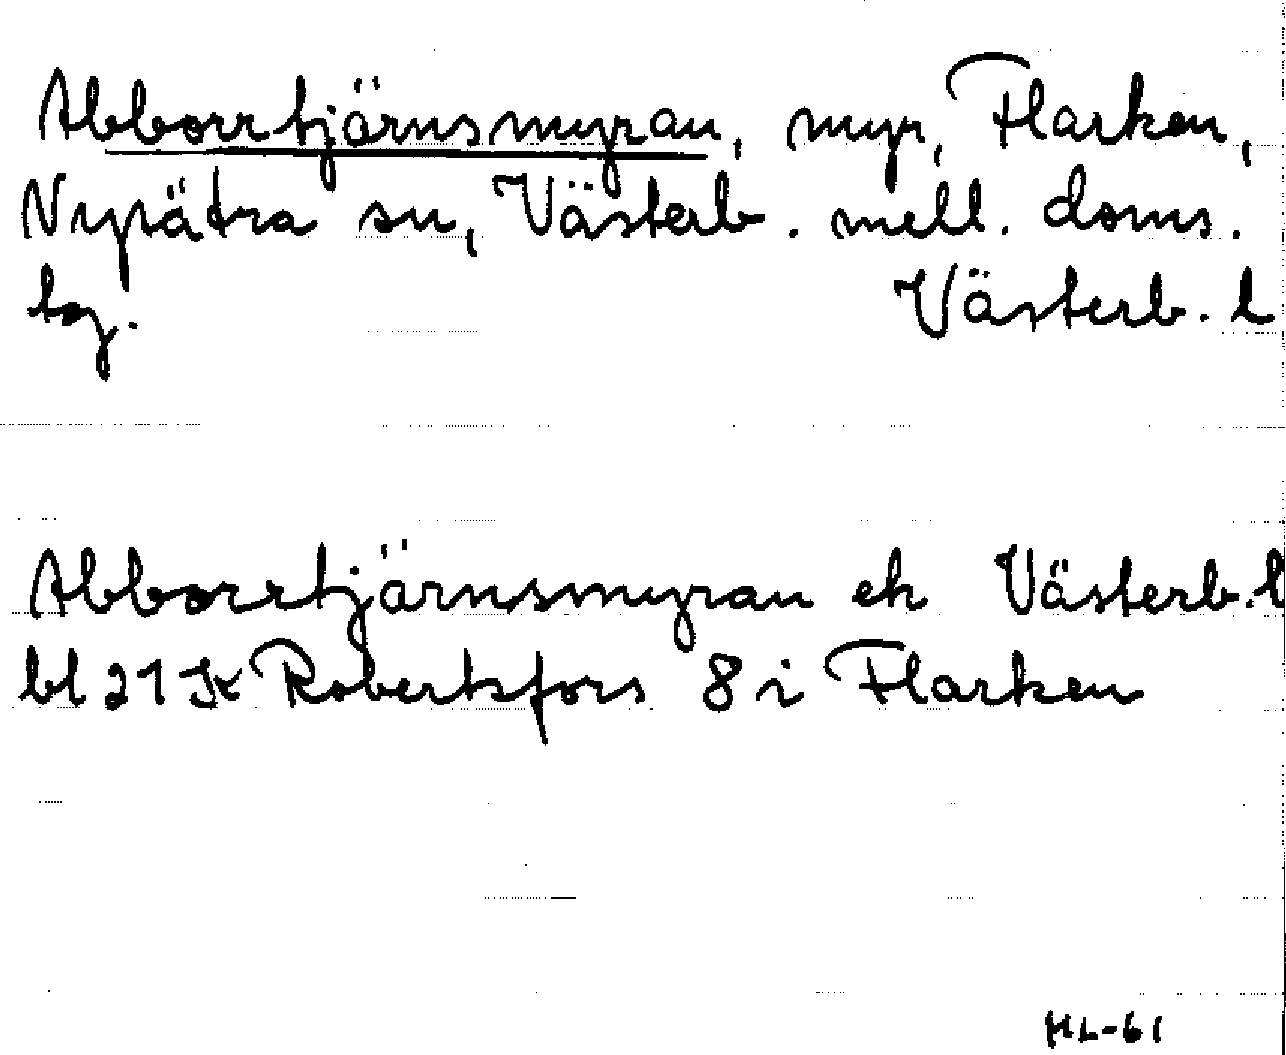 Abborrtjärnsmyran, myr, Flarken,
Nysätra sn, Västerb. mell. doms.
tg. Västerb. l
Abborrtjärnsmyran ek Västerb. l
bl 21 Sk Robertsfors 8 i Flarken
HL-61